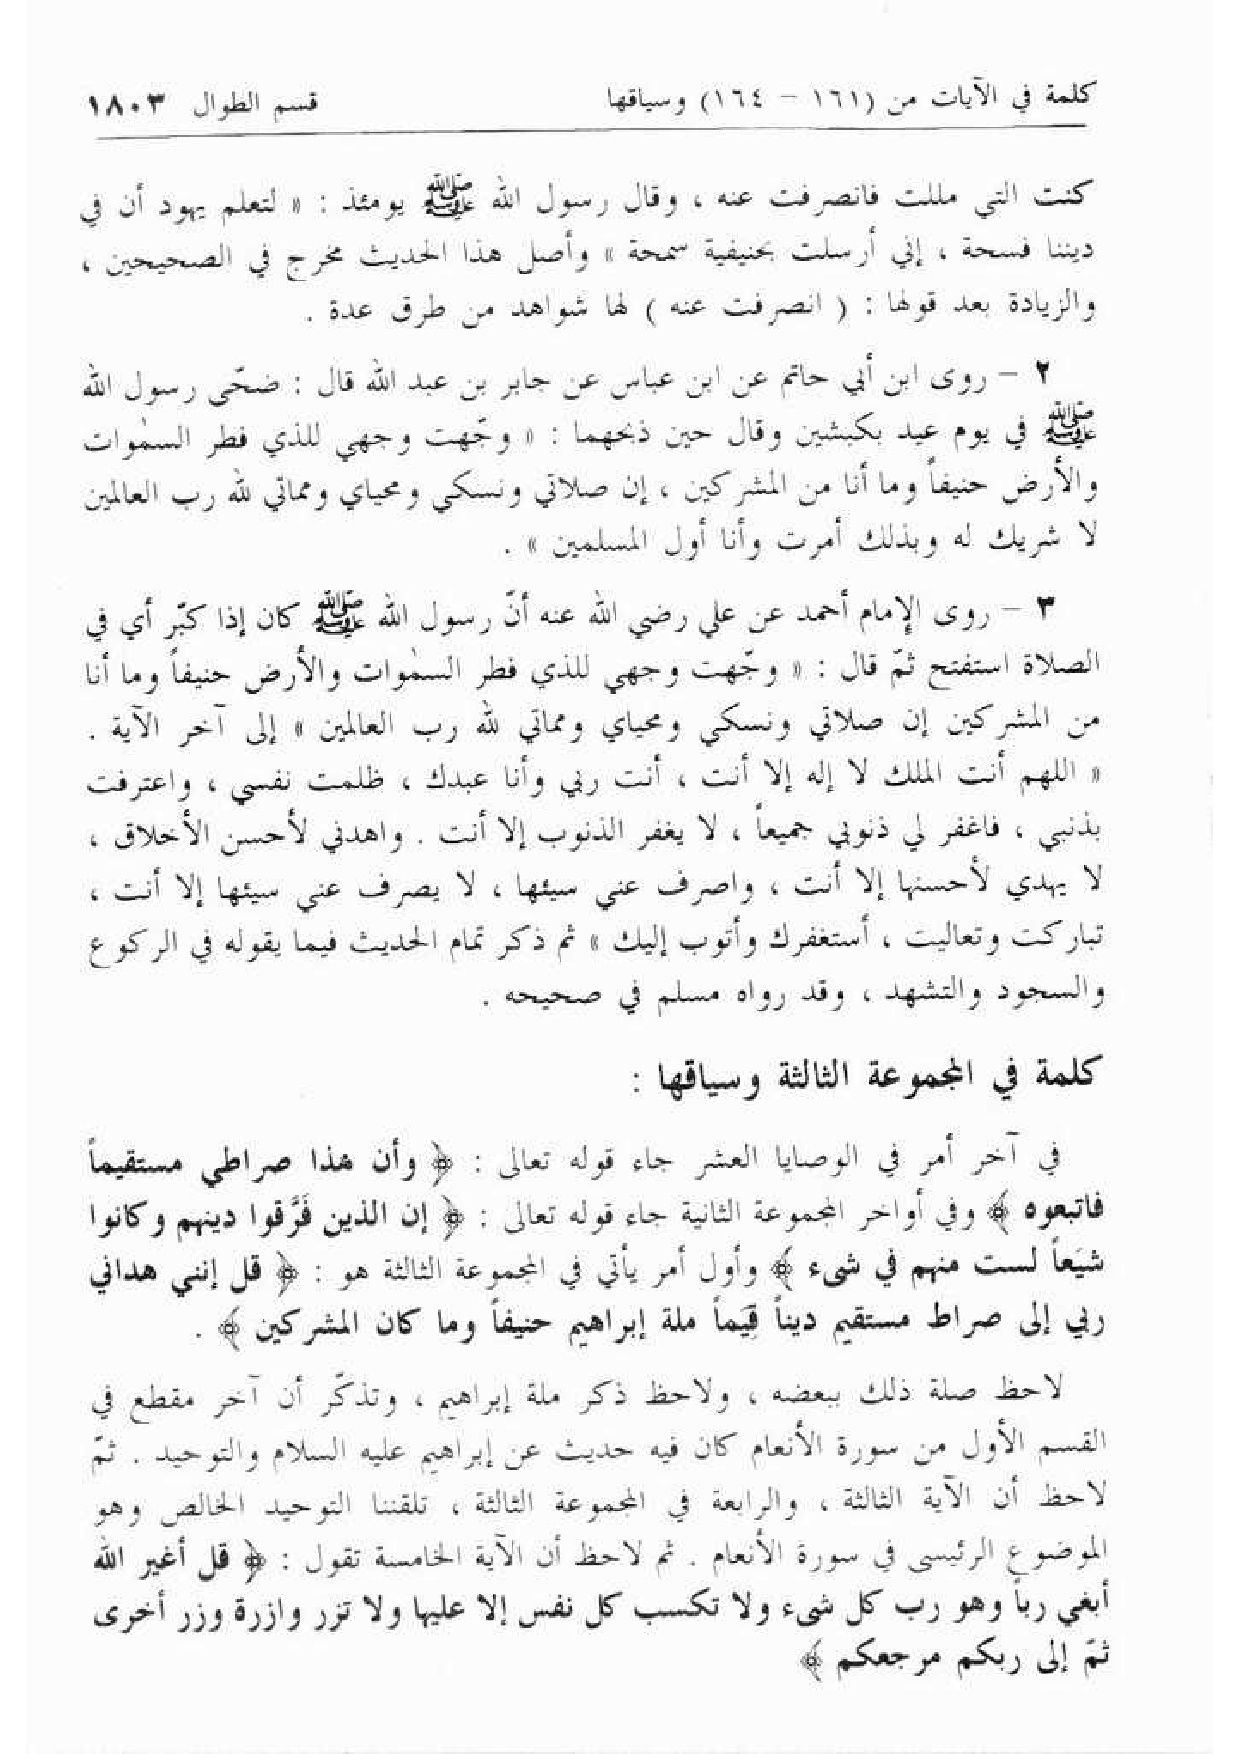 كلمة في الآيات من (١٦١ - ١٦٤) وسياقها قسم الطوال ١٨٠٣
كنت التي مللت فانصرفت عنه ، وقال رسول الله ﷺ يومئذ : « لتعلم يهود أن في
ديننا فسحة ، إني أرسلت بحنيفية سمحة » وأصل هذا الحديث مخرج في الصحيحين ،
والزيادة بعد قولها : ( انصرفت عنه ) لها شواهد من طرق عدة .
٢ - روى ابن أبي حاتم عن ابن عباس عن جابر بن عبد الله قال : ضحّى رسول الله
ﷺ في يوم عيد بكبشين وقال حين ذبحهما : « وجّهت وجهي للذي فطر السمٰوات
والأرض حنيفاً وما أنا من المشركين ، إن صلاتي ونسكي ومحياي ومماتي لله رب العالمين
لا شريك له وبذلك أمرت وأنا أول المسلمين » .
٣ - روى الإمام أحمد عن علي رضي الله عنه أنّ رسول الله ﷺ كان إذا كبّر أي في
الصلاة استفتح ثمّ قال : « وجّهت وجهي للذي فطر السمٰوات والأرض حنيفاً وما أنا
من المشركين إن صلاتي ونسكي ومحياي ومماتي لله رب العالمين » إلى آخر الآية .
« اللهم أنت الملك لا إله إلا أنت ، أنت ربي وأنا عبدك ، ظلمت نفسي ، واعترفت
بذنبي ، فاغفر لي ذنوبي جميعاً ، لا يغفر الذنوب إلا أنت . واهدني لأحسن الأخلاق ،
لا يهدي لأحسنها إلا أنت ، واصرف عني سيئها ، لا يصرف عني سيئها إلا أنت ،
تباركت وتعاليت ، أستغفرك وأتوب إليك » ثم ذكر تمام الحديث فيما يقوله في الركوع
والسجود والتشهد ، وقد رواه مسلم في صحيحه .
كلمة في المجموعة الثالثة وسياقها :
في آخر أمر في الوصايا العشر جاء قوله تعالى : ﴿ وأن هذا صراطي مستقيماً
فاتبعوه ﴾ وفي أواخر المجموعة الثانية جاء قوله تعالى : ﴿ إن الذين فَرَّقوا دينهم وكانوا
شيَعاً لست منهم في شىء ﴾ وأول أمر يأتي في المجموعة الثالثة هو : ﴿ قل إنني هداني
ربي إلى صراط مستقيم ديناً قِيَماً ملة إبراهيم حنيفاً وما كان المشركين ﴾ .
لاحظ صلة ذلك ببعضه ، ولاحظ ذكر ملة إبراهيم ، وتذكّر أن آخر مقطع في
القسم الأول من سورة الأنعام كان فيه حديث عن إبراهيم عليه السلام والتوحيد . ثمّ
لاحظ أن الآية الثالثة ، والرابعة في المجموعة الثالثة ، تلقننا التوحيد الخالص وهو
الموضوع الرئيسى في سورة الأنعام . ثم لاحظ أن الآية الخامسة تقول : ﴿ قل أغير الله
أبغي رباً وهو رب كل شىء ولا تكسب كل نفس إلا عليها ولا تزر وازرة وزر أخرى
ثمّ إلى ربكم مرجعكم ﴾